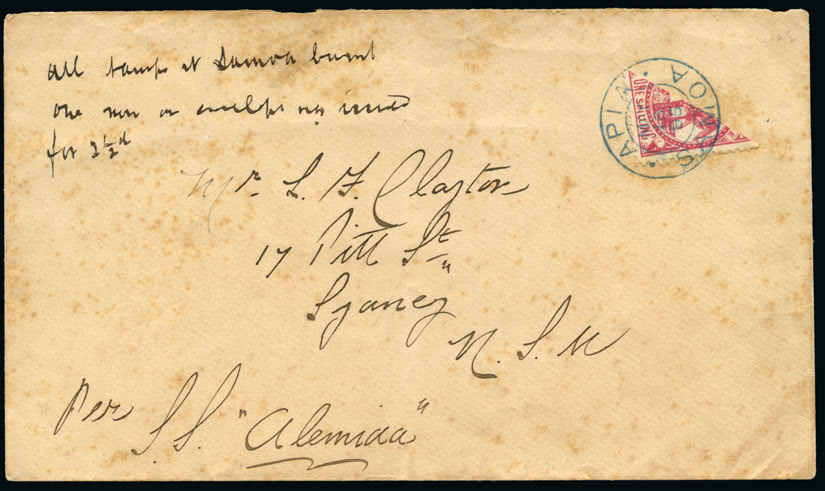 all stamps at Samoa burnt
one now on envelope was issued
for 2½d
APIA · SAMOA
ONE SHILLING
Mr. L. F. Clayton
17 Pitt St.
Sydney
N. S. W
Per S.S. "Alemida"